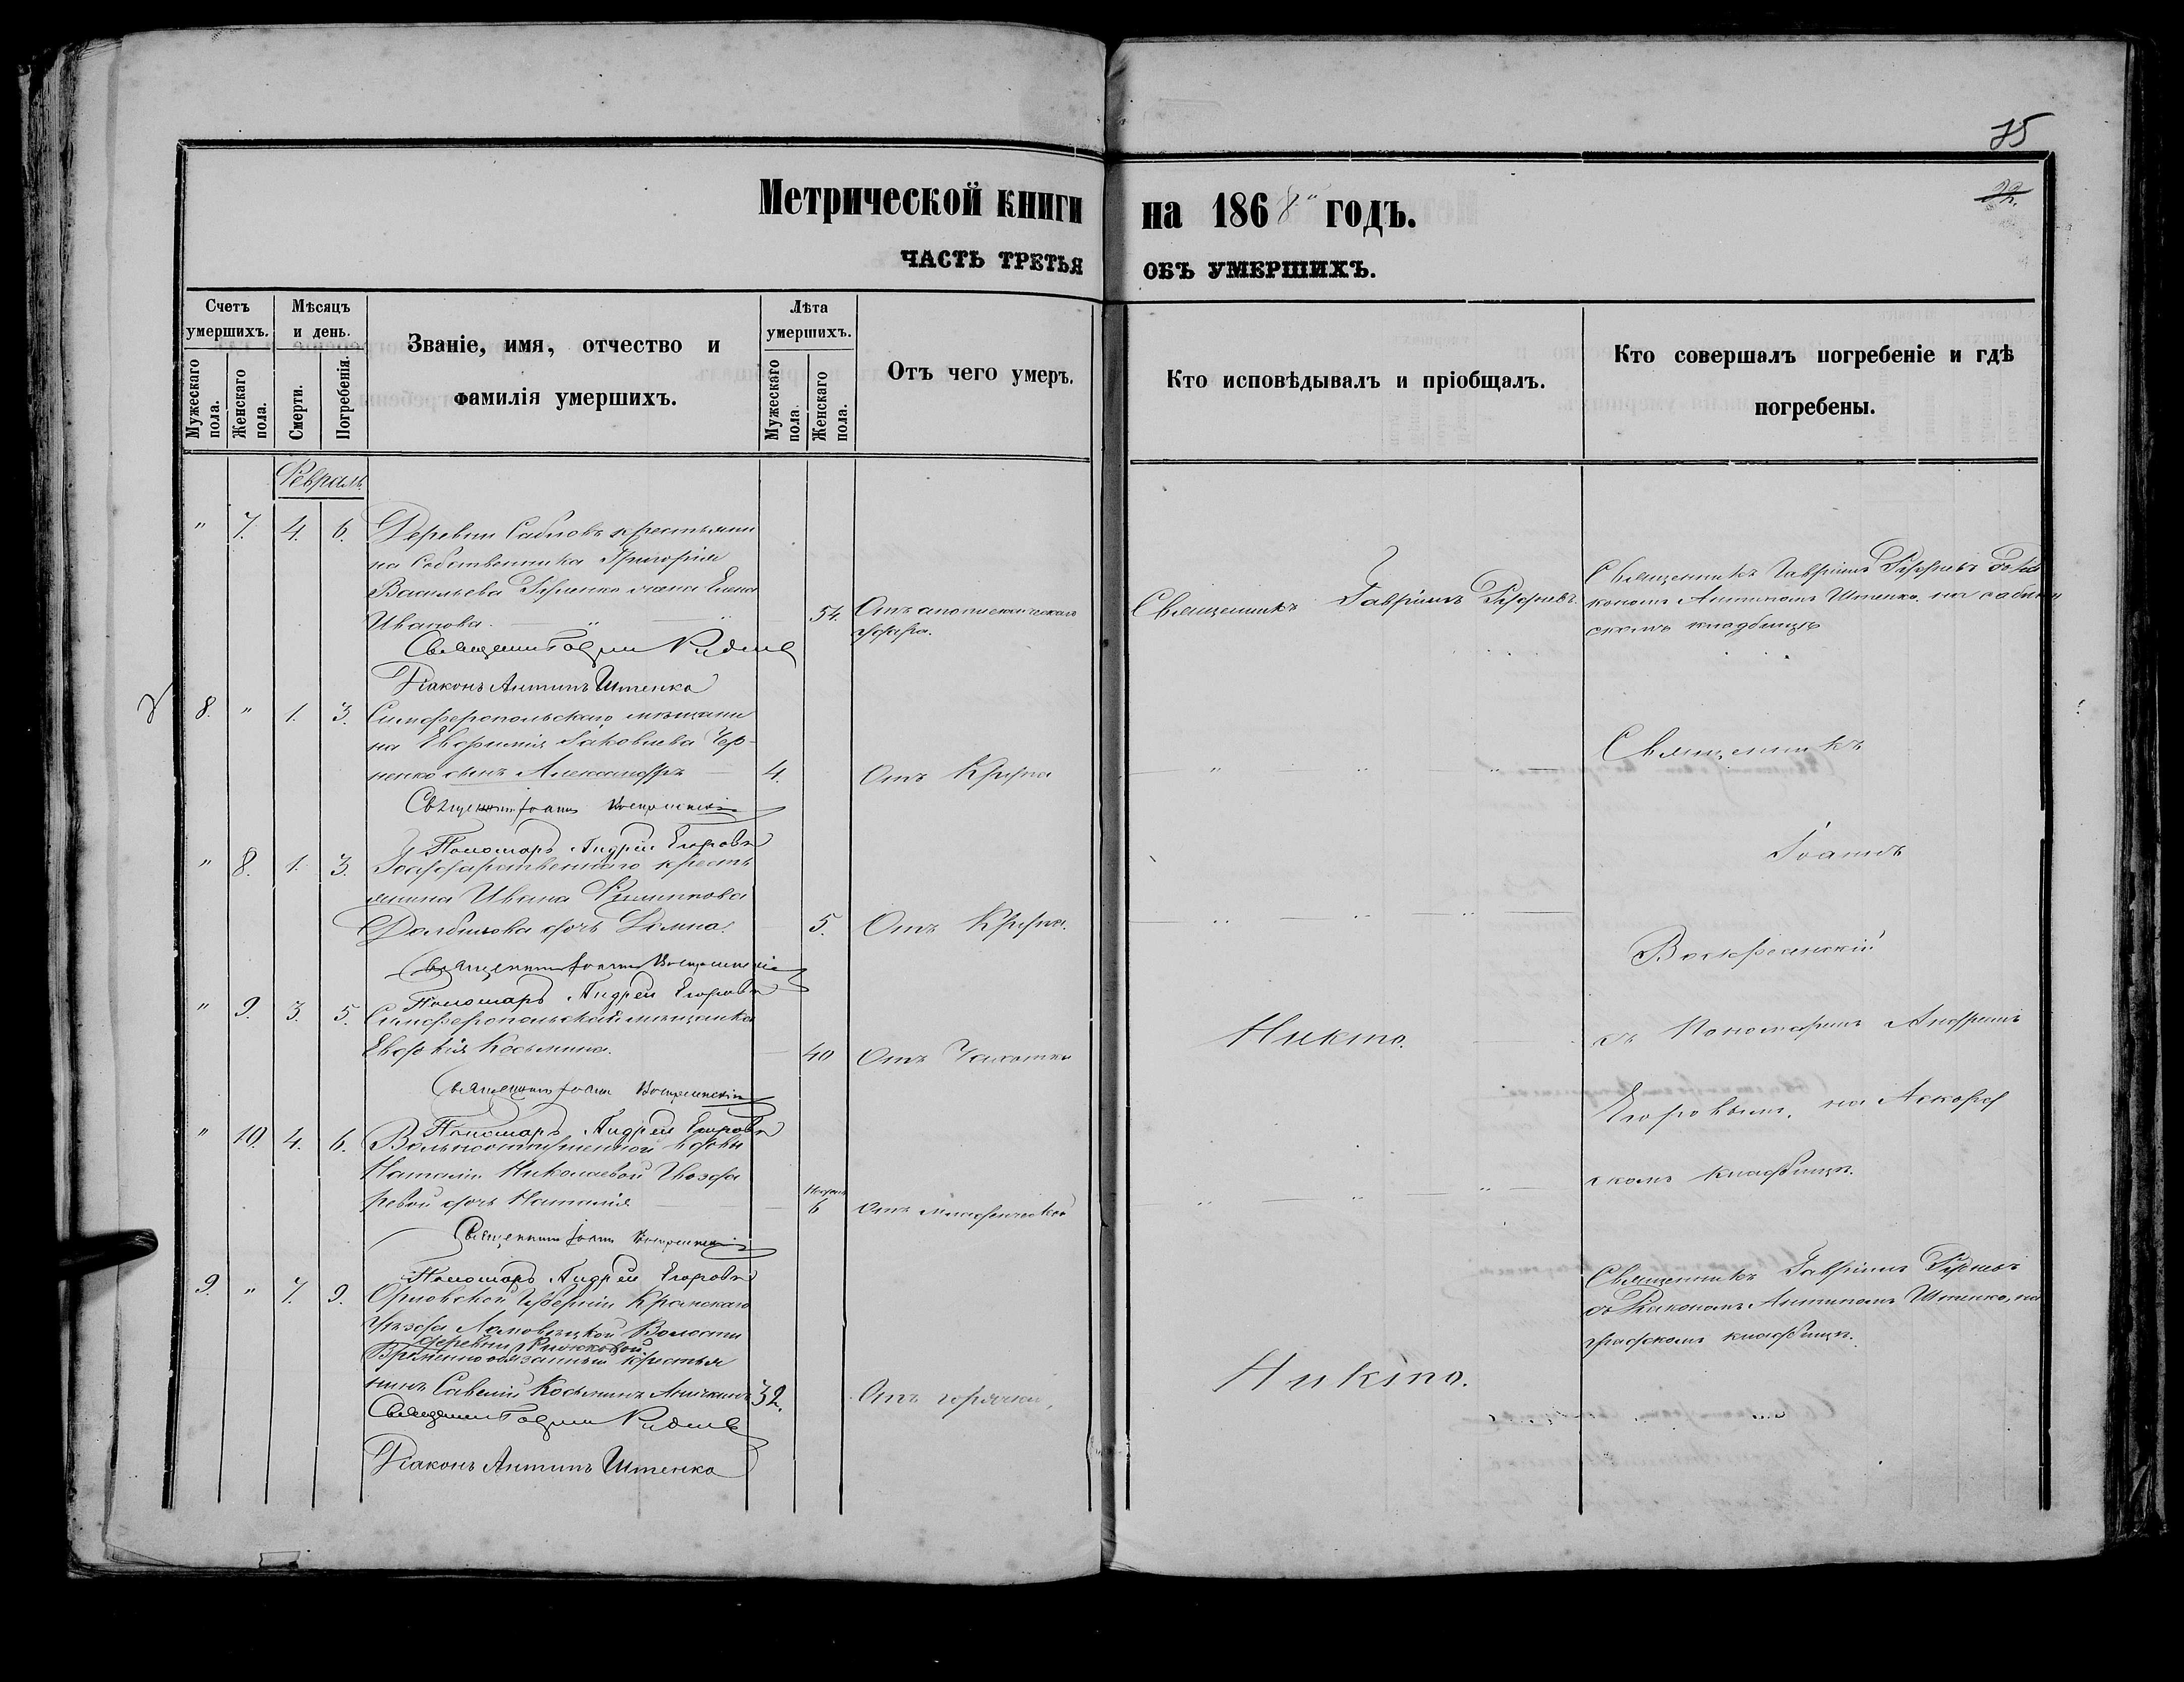 75
Метрической книги на 1868 годъ.
ЧАСТЬ ТРЕТЬЯ ОБЪ УМЕРШИХЪ.
Счетъ умершихъ.
Мужескаго пола.
Женскаго пола.
Мѣсяцъ и день.
Смерти.
Погребенія.
Званіе, имя, отчество и
фамилія умершихъ.
Лѣта умершихъ.
Мужескаго пола.
Женскаго пола.
Отъ чего умеръ.
Кто исповѣдывалъ и пріобщалъ.
Кто совершалъ погребеніе и гдѣ
погребены.
Февраль
" 7. 4. 6. Деревни Сабловъ крестьяни
на Собственника Григорія
Васильева жена Елена
Иванова. 54. Отъ апоплексическаго
удара.
Священникъ Гавріилъ Рудневъ.
Священникъ Гавріилъ Рудневъ съ Діа
кономъ Антипомъ Штенко на саблын
скомъ кладбищѣ
Священникъ Гавріилъ Рудневъ
Діаконъ Антипъ Штенко
8. " 1. 3. Симферопольскаго мѣщани
на Евфимія Іаковлева Чер-
ненко сынъ Александръ 4. Отъ Крупа
" " "
Священникъ
Священникъ Іоаннъ Воскресенскій
Пономарь Андрей Егоровъ
" 8. 1. 3. Государственнаго кресть
янина Ивана Филиппова
дочь Домна. 5. Отъ Крупа.
" " "
Іоаннъ
Воскресенскій
Священникъ Іоаннъ Воскресенскій
Пономарь Андрей Егоровъ
" 9. 3. 5. Симферопольская мѣщанка
Евдокія Косьмина. 40 Отъ Чахотки
Никто.
съ Пономаремъ Андреемъ
Священникъ Іоаннъ Воскресенскій
Пономарь Андрей Егоровъ
Егоровымъ, на
" 10. 4. 6. Вольноотпущенной вдовы
Наталіи Николаевой
ревой дочь Наталія 6 Отъ младенческой
" " "
скомъ кладбищѣ.
Священникъ Іоаннъ Воскресенскій
Пономарь Андрей Егоровъ
9. " 7. 9. Орловской Губерніи Кромскаго
уѣзда Волости
деревни
Временнообязанный крестья
нинъ Савелій Косьминъ 32. Отъ горячки,
Никто.
Священникъ Гавріилъ Рудневъ
съ Діакономъ Антипомъ Штенко, на
градскомъ кладбищѣ.
Священникъ Гавріилъ Рудневъ
Діаконъ Антипъ Штенко